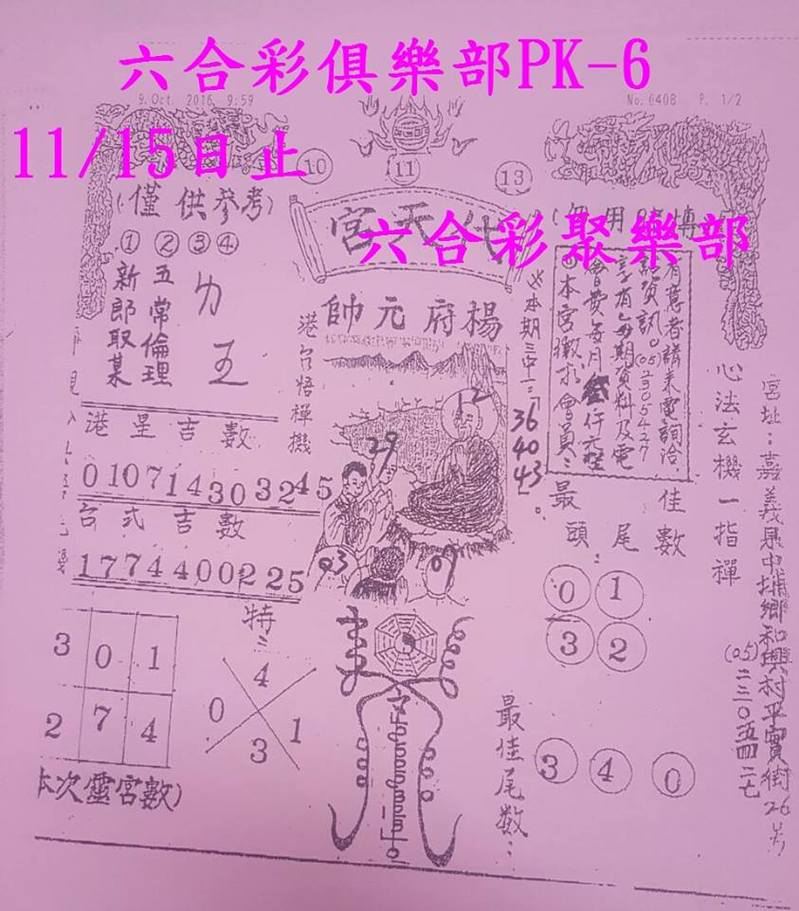 六合彩俱樂部PK-6
9. Oct. 2016 9:59
No. 0408 P. 1/2
11/15日止
10 11 13
(僅供參考)
代天宮
六合彩聚樂部
① ② ③ ④
新郎取某
五常倫理
力
五
港台悟禪機
楊府元帥
※本期三中一:
36
40
43
有意者請來電詢洽
◎本宮徵求會員:
心法玄機一指禪
宮址:嘉義縣中埔鄉和興村平實街26號
(05)二三〇五四二七
港星吉數
01071430324５
台式吉數
1774400225
12
29
03
07
最佳
頭尾數:
0 1
3 2
3 0 1
2 7 4
本次靈宮數)
特:
4
0 1
3
最佳尾數:
3 4 0